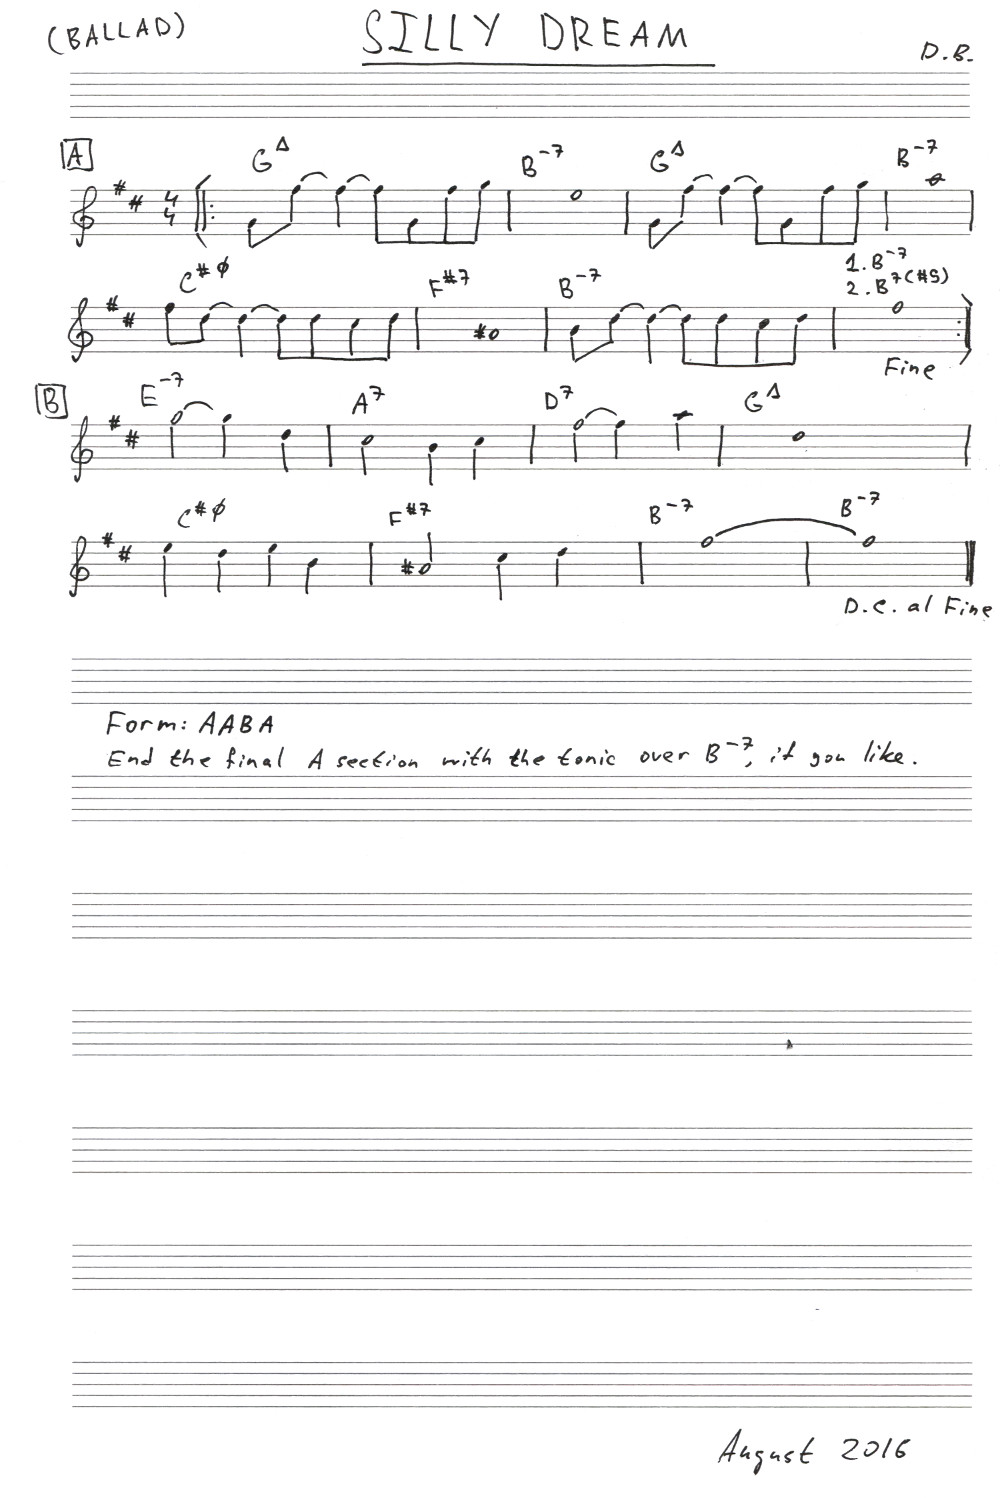 (BALLAD) SILLY DREAM D.B.
A GΔ B-7 GΔ B-7
4
4
C#ø F#7 B-7 1. B-7
2. B7(#5)
Fine
B E-7 A7 D7 GΔ
C#ø F#7 B-7 B-7
D.C. al Fine
Form: AABA
End the final A section with the tonic over B-7, if you like.
August 2016